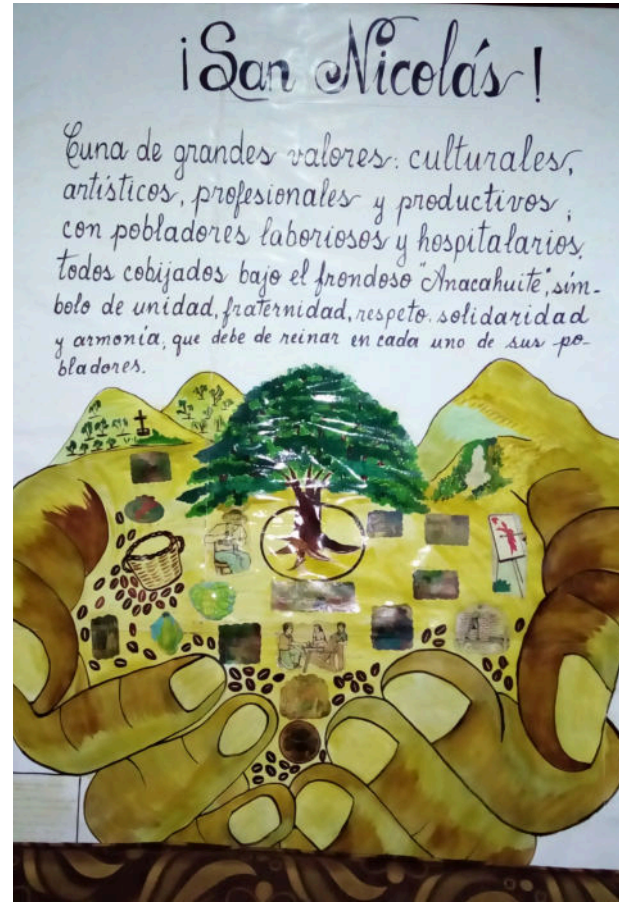 ¡San Nicolás!
Cuna de grandes valores: culturales,
artísticos, profesionales y productivos,
con pobladores laboriosos y hospitalarios,
todos cobijados bajo el frondoso "Anacahuite", sím-
bolo de unidad, fraternidad, respeto, solidaridad
y armonía, que debe de reinar en cada uno de sus po-
bladores.